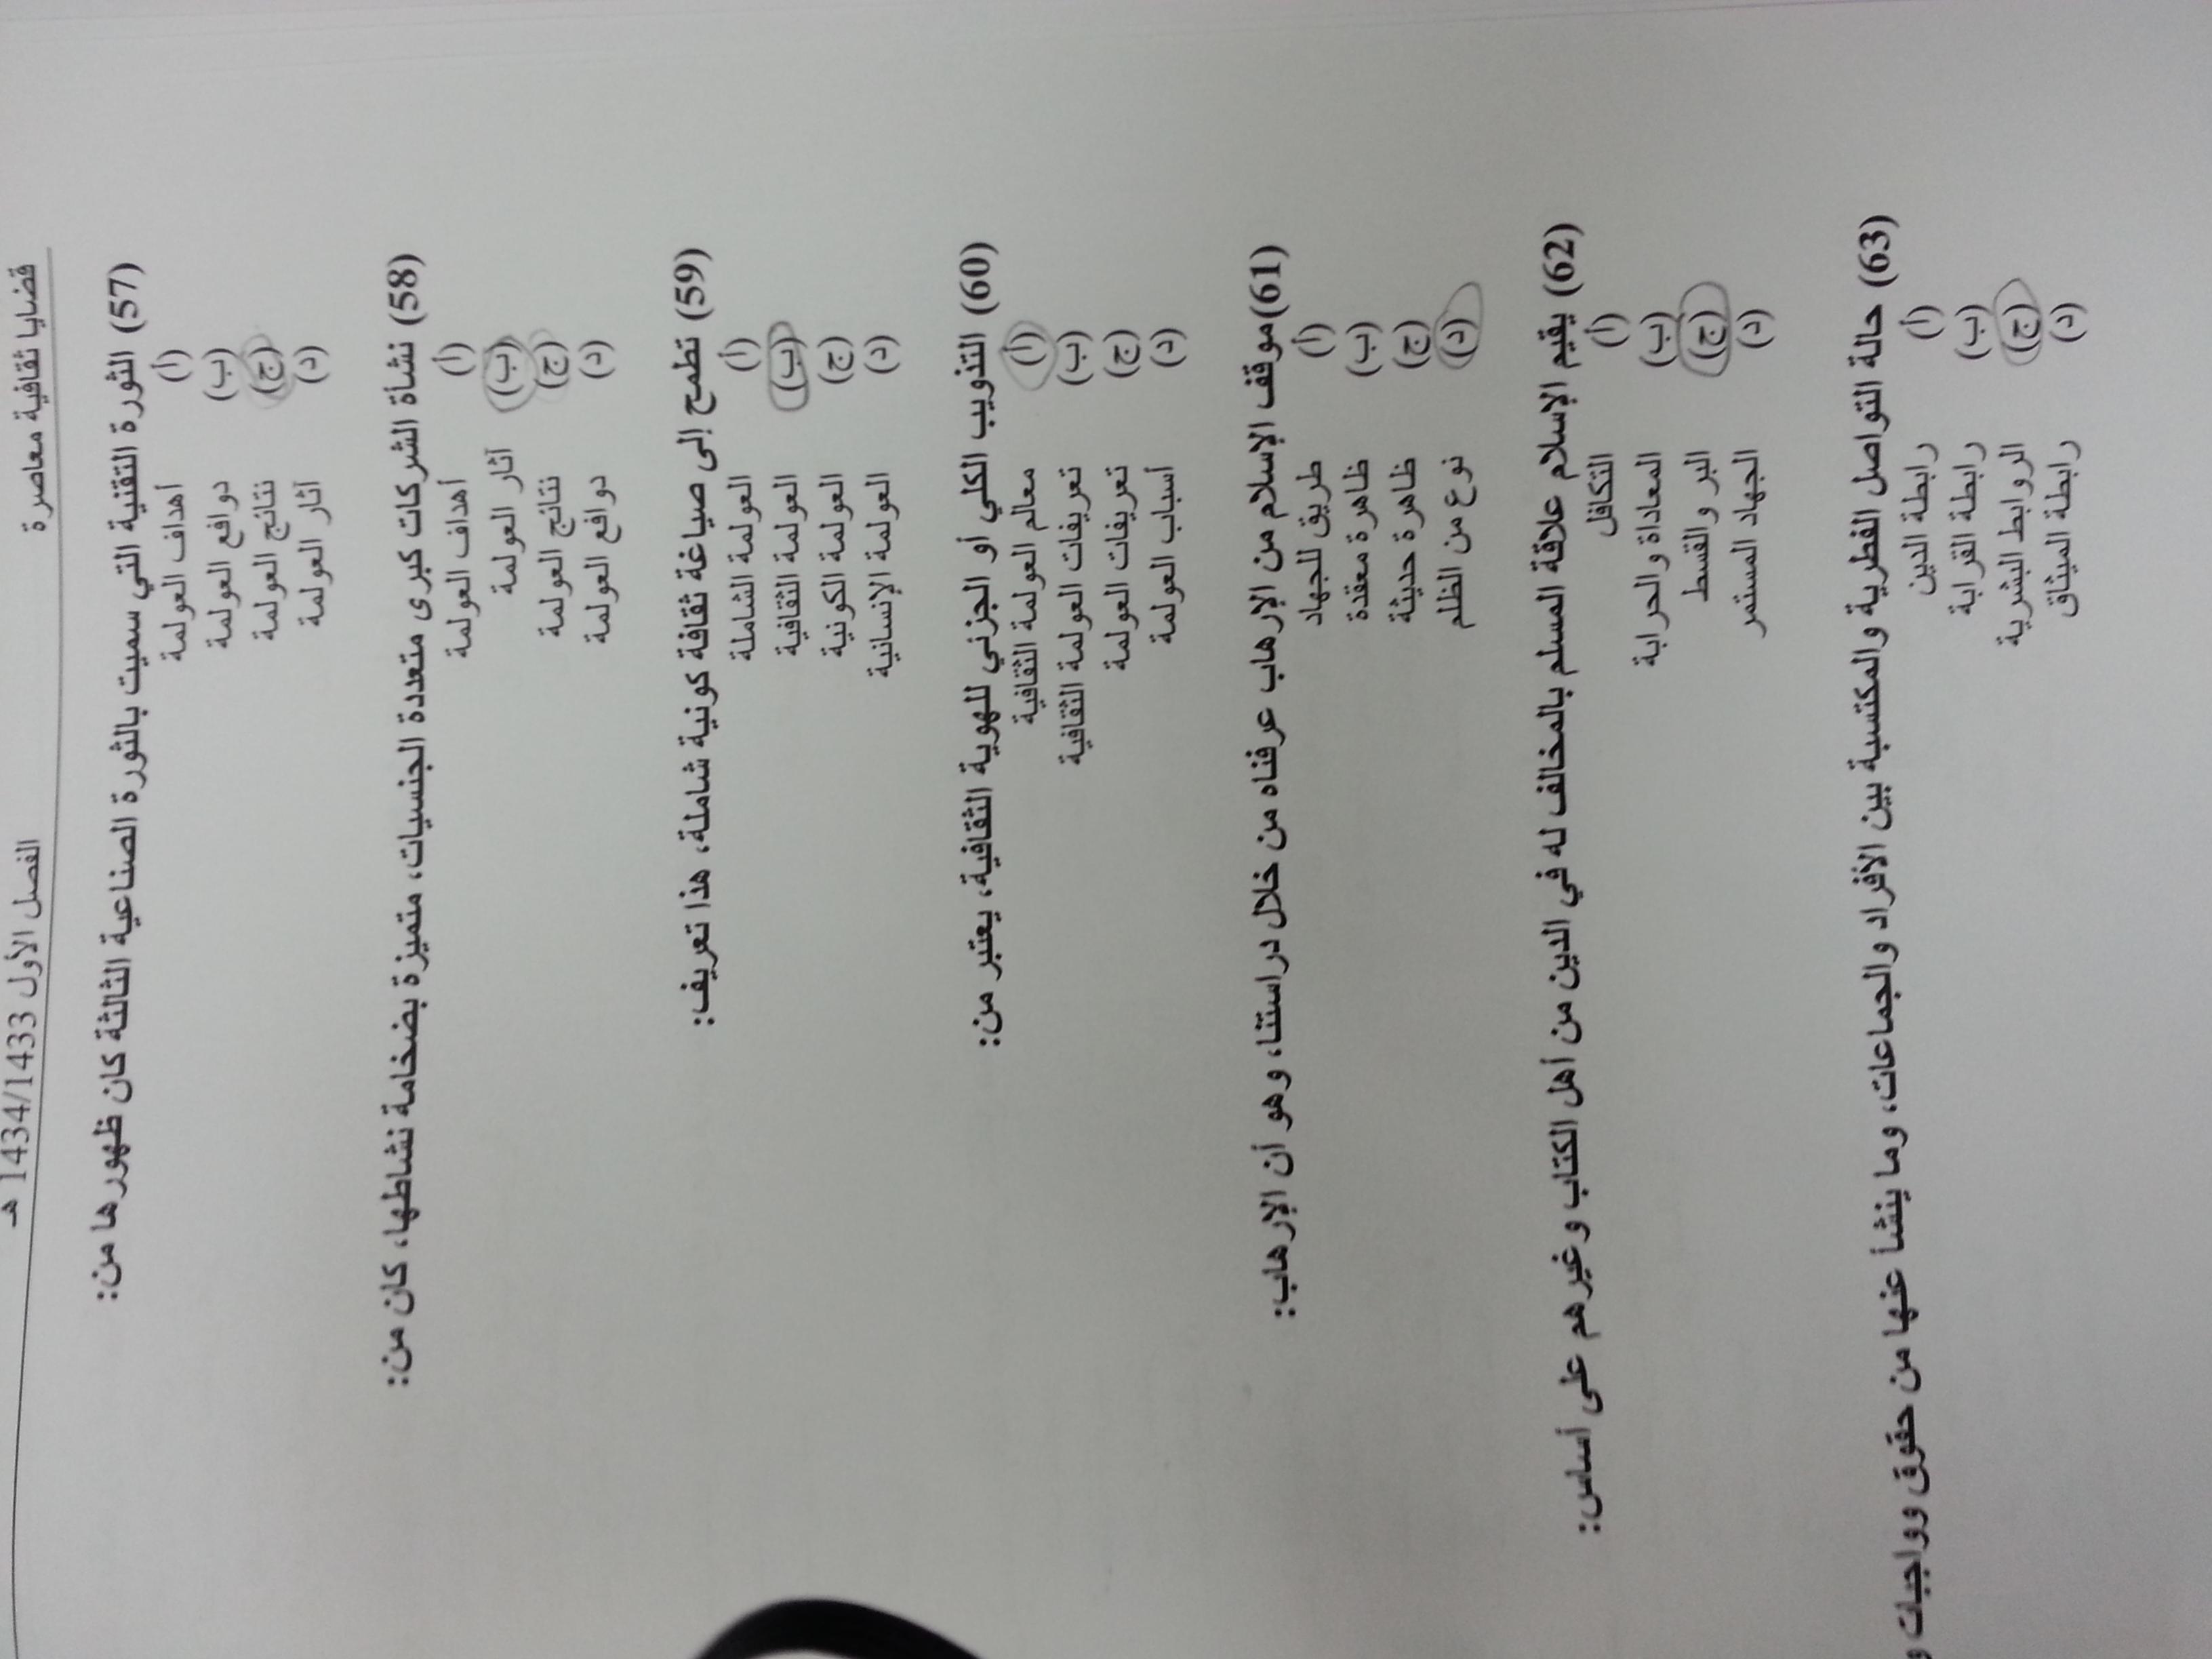 قضايا ثقافية معاصرة الفصل الأول 1434/1433 هـ
(57) الثورة التقنية التي سميت بالثورة الصناعية الثالثة كان ظهورها من:
(أ) أهداف العولمة
(ب) دوافع العولمة
(ج) نتائج العولمة
(د) آثار العولمة
(58) نشأة الشركات كبرى متعددة الجنسيات، متميزة بضخامة نشاطها، كان من:
(أ) أهداف العولمة
(ب) آثار العولمة
(ج) نتائج العولمة
(د) دوافع العولمة
(59) تطمح إلى صياغة ثقافة كونية شاملة، هذا تعريف:
(أ) العولمة الشاملة
(ب) العولمة الثقافية
(ج) العولمة الكونية
(د) العولمة الإنسانية
(60) التذويب الكلي أو الجزئي للهوية الثقافية، يعتبر من:
(أ) معالم العولمة الثقافية
(ب) تعريفات العولمة الثقافية
(ج) تعريفات العولمة
(د) أسباب العولمة
(61) موقف الإسلام من الإرهاب عرفناه من خلال دراستنا، وهو أن الإرهاب:
(أ) طريق للجهاد
(ب) ظاهرة معقدة
(ج) ظاهرة حديثة
(د) نوع من الظلم
(62) يقيم الإسلام علاقة المسلم بالمخالف له في الدين من أهل الكتاب وغيرهم على أساس:
(أ) التكافل
(ب) المعاداة والحرابة
(ج) البر والقسط
(د) الجهاد المستمر
(63) حالة التواصل الفطرية والمكتسبة بين الأفراد والجماعات، وما ينشأ عنها من حقوق وواجبات و
(أ) رابطة الدين
(ب) رابطة القرابة
(ج) الروابط البشرية
(د) رابطة الميثاق